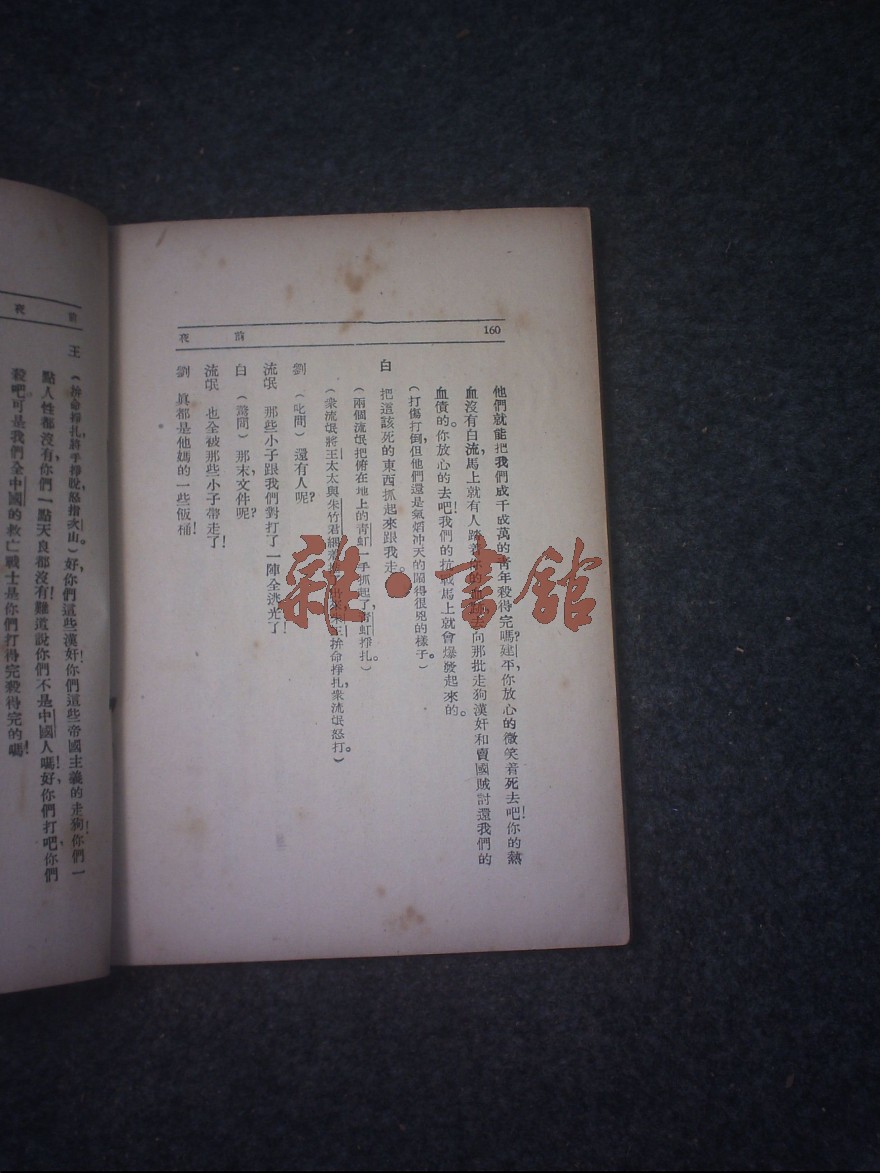 160
前夜
他們就能把我們成千成萬的青年殺得完嗎？建平，你放心的微笑着死去吧！你的熱
血沒有白流，馬上就有人踏着你的血跡去向那批走狗漢奸和賣國賊討還我們的
血債的。你放心的去吧！我們的抗戰馬上就會爆發起來的。
（打傷打倒但他們還是氣焰冲天的鬧得很兇的樣子。）
白 把這該死的東西抓起來跟我走。
（兩個流氓把俯在地上的青虹一手抓起了青虹掙扎。
（衆流氓將王太太與朱竹君綑 拚命掙扎衆流氓怒打。）
劉 （叱問）還有人呢？
流氓 那些小子跟我們對打了一陣全 光了
白 （驚問）那末文件呢？
流氓 也全被那些小子帶走了！
劉 眞都是他媽的一些飯桶！
前夜
王 （拚命掙扎將手掙脫怒指次山）好你們這些漢奸！你們這些帝國主義的走狗！你們一
點人性都沒有，你們一點天良都沒有！難道說你們不是中國人嗎！好，你們打吧，你們
殺吧！可是我們全中國的救亡戰士是你們打得完殺得完的嗎！
雜·書館